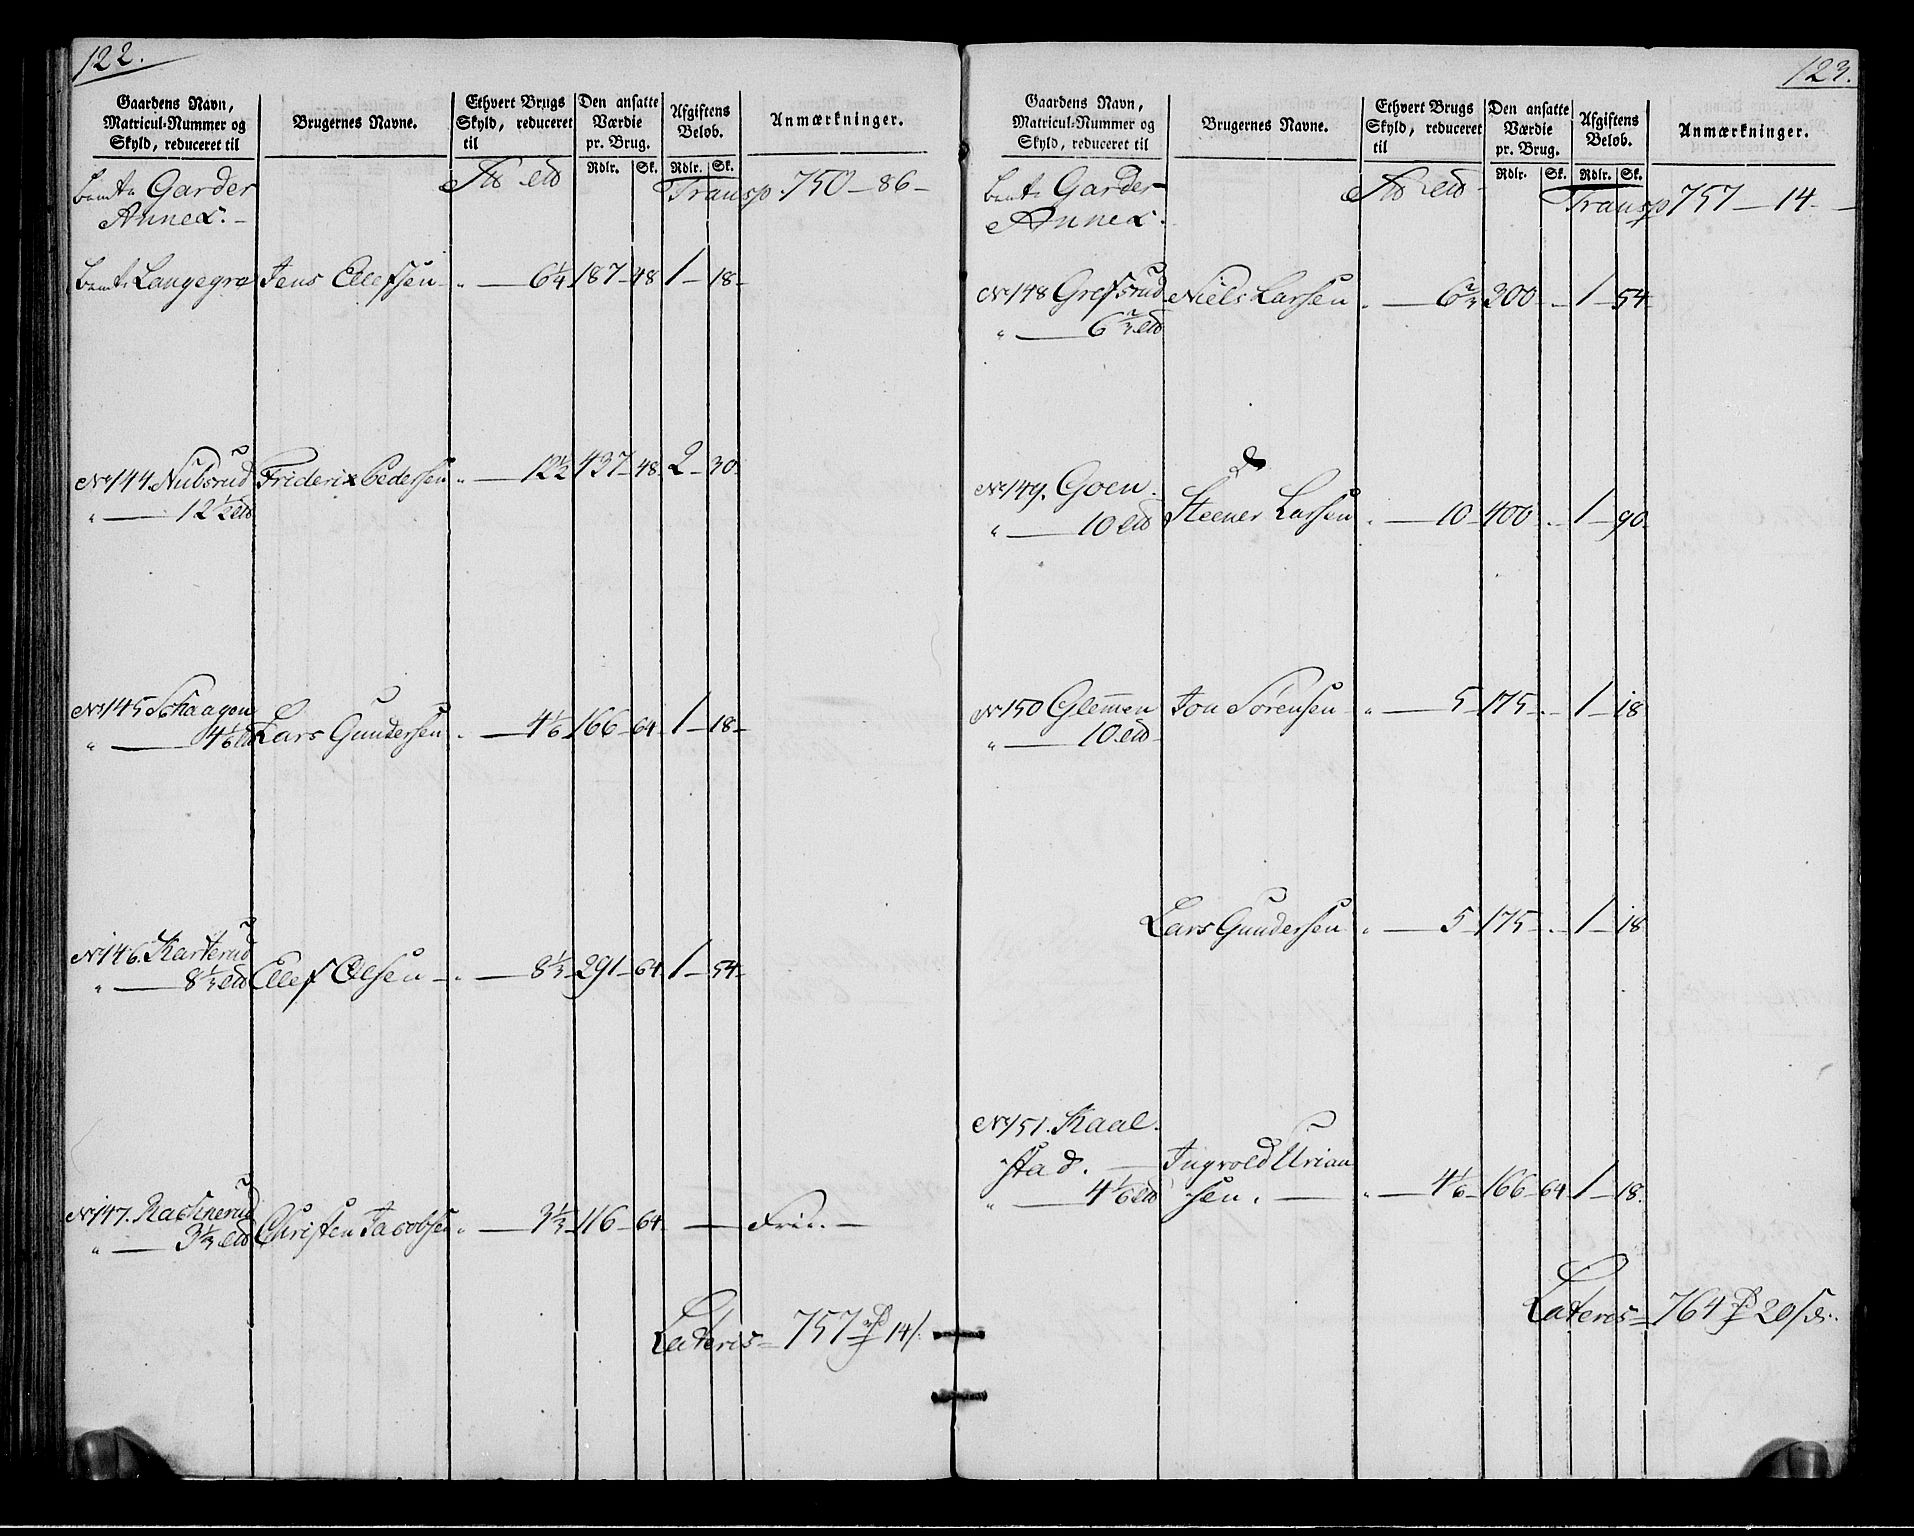 122.
Gaardens Navn, Matricul-Nummer og Skyld, reduceret til
Brugernes Navne.
Ethvert Brugs Skyld, reduceret til
Den ansatte Værdie pr. Brug.
Rdlr. Sk.
Afgiftens Beløb.
Rdlr. Sk.
Anmærkninger.
Garder
Annex.
Transp. 750 - 86 -
Langegra Jens Ellefsen - " - 6 1/4 187 - 48 1 - 18 -
No 144. Nubsrud Friderix Pedersen " - 12 1/2 437 - 48 2 - 30 -
" - 12 1/2
No 145 Schaagon
" - 4 1/6 Lars Gundersen " - 4 1/6 166 - 64 1 - 18 -
No 146. Karterud
" - 8 1/3 Ellef Olsen - " - 8 1/3 291 - 64 1 - 54 -
No 147.
" - 3 1/3 Christen Jacobsen " - 3 1/3 116 - 64 - Frie. -
Lateris = 757 rd 14 s.
123.
Gaardens Navn, Matricul-Nummer og Skyld, reduceret til
Brugernes Navne.
Ethvert Brugs Skyld, reduceret til
Den ansatte Værdie pr. Brug.
Rdlr. Sk.
Afgiftens Beløb.
Rdlr. Sk.
Anmærkninger.
Garder
Annex.
Transp 757 - 14 -
No 148 Grefsrud Niels Larsen " - 6 2/3 300 - " - 1 - 54
" - 6 2/3
No 149. Goen.
" - 10 Steener Larsen " - 10 - 400 " - 1 - 90 -
No 150 Glemmen Jon Sörensen - " - 5 - 175 - " - 1 - 18
" - 10
Lars Gundersen " - 5 - 175 - " - 1 - 18
No 151. Kaal-
stad. - Ingvold Urian
" - 4 1/6 sen. - " - 4 1/6 166 - 64 1 - 18.
Lateris = 764 rd 20 s.